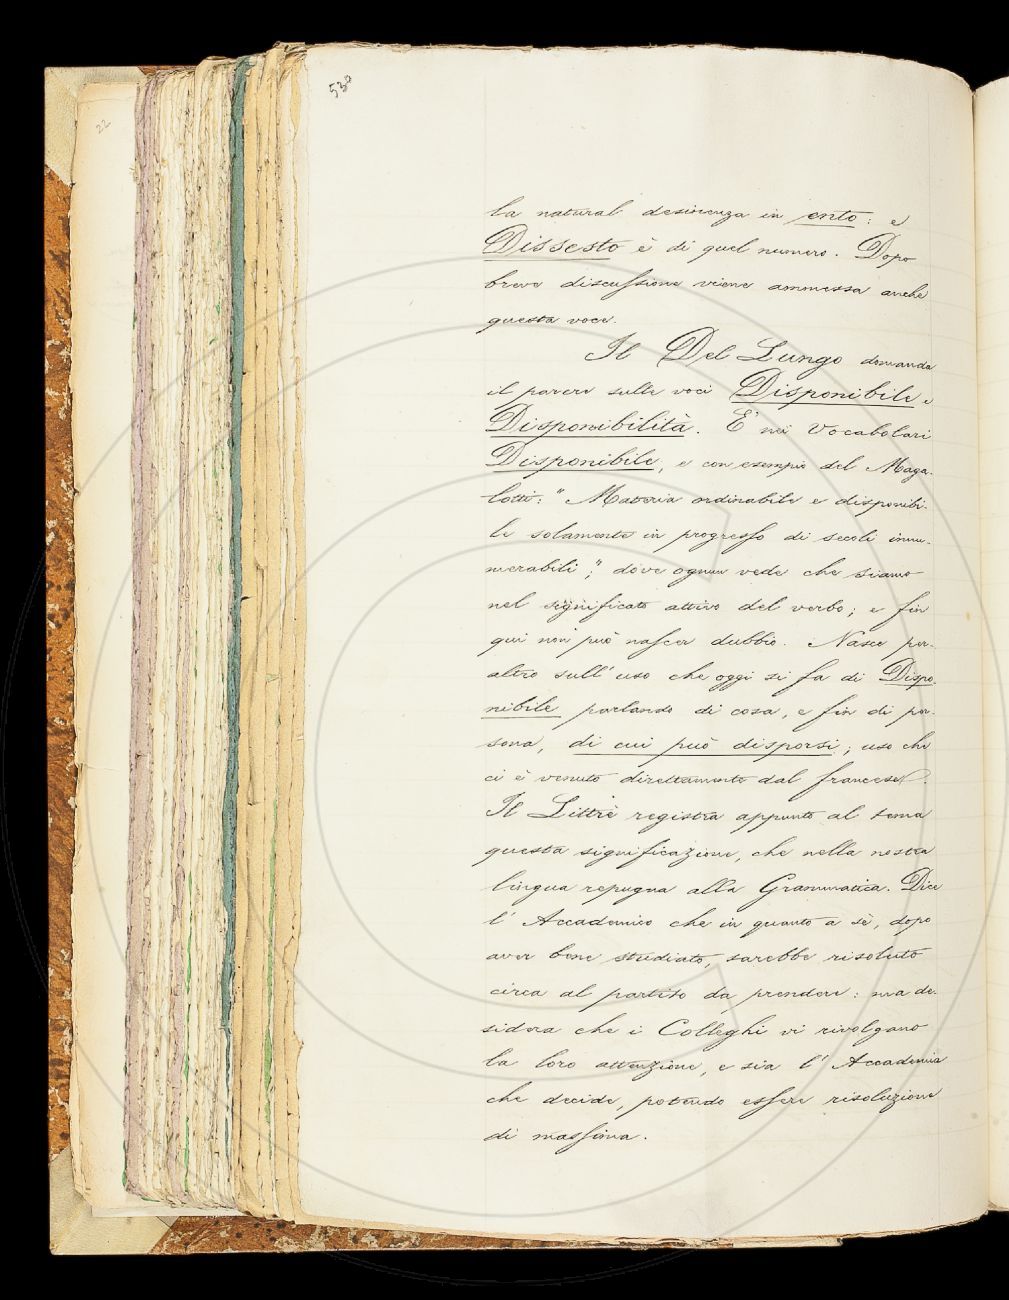 530
22
la natural desinenza in ento: e
Dissesto è di quel numero. Dopo
breve discussione viene ammessa anche
questa voce.
Il Del Lungo domanda
il parere sulle voci Disponibile e
Disponibilità. E' nei Vocabolari
Disponibile, e con esempio del Maga-
lotti: "Materia ordinabile e disponibi-
le solamente in progresso di secoli innu-
merabili;" dove ognun vede che siamo
nel significato attivo del verbo; e fin
qui non può nascer dubbio. Nasce per-
altro sull'uso che oggi si fa di Dispo-
nibile parlando di cosa, e fin di per-
sona, di cui può disporsi; uso che
ci è venuto direttamente dal francese.
Il Littrè registra appunto al tema
questa significazione, che nella nostra
lingua repugna alla Grammatica. Dice
l'Accademico che in quanto a sè, dopo
aver bene studiato, sarebbe risoluto
circa al partito da prendere: ma de-
sidera che i Colleghi vi rivolgano
la loro attenzione, e sia l'Accademia
che decide, potendo essere risoluzione
di massima.